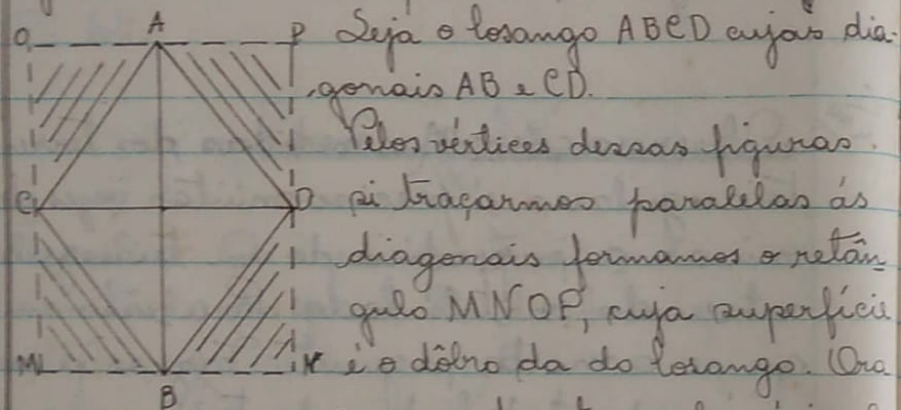 O A P Seja o losango ABCD cujas dia-
gonais AB e CD.
Pelos vértices dessas figuras
C D si traçarmos paralelas ás
diagonais formamos o retân
gulo MNOP, cuja superfície
M N é o dôbro da do losango. (Ora
B